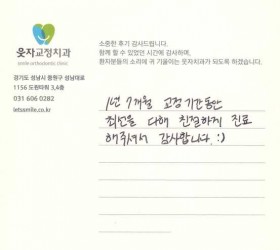 웃자교정치과
smile orthodontic clinic
경기도 성남시 중원구 성남대로
1156 도원타워 3,4층
031 606 0282
letssmile.co.kr
소중한 후기 감사드립니다.
함께 할 수 있었던 시간에 감사하며,
환자분들의 소리에 귀 기울이는 웃자치과가 되도록 하겠습니다.
1년 7개월 교정 기간동안
최선을 다해 친절하게 진료
해주셔서 감사합니다. :)